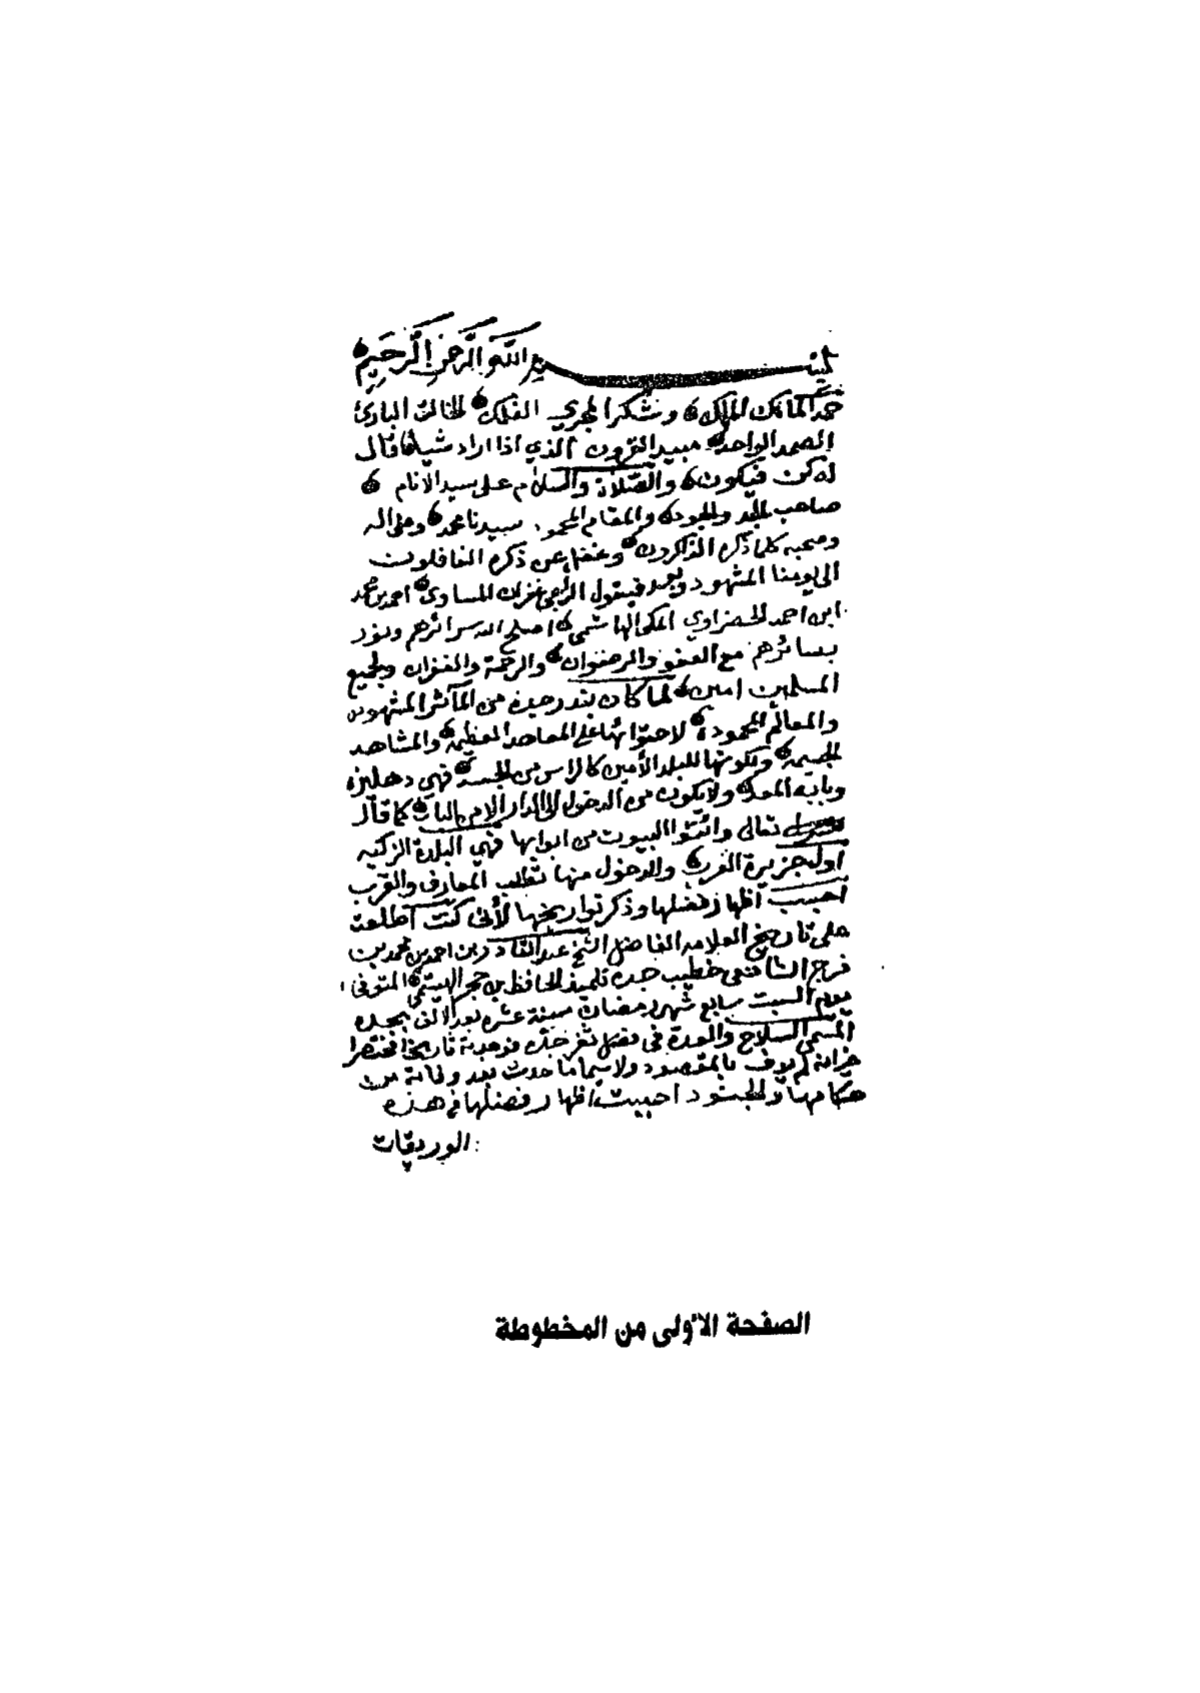 بسم الله الرحمن الرحيم
حمدا لمالك الملك وشكرا لمجري الفلك الخالق البارئ
الصمد الواحد مبيد القرون الذي اذا اراد شيأ قال
له كن فيكون والصلاة والسلام على سيد الانام
صاحب المجد والجود والمقام المحمود سيدنا محمد وعلى اله
وصحبه كلما ذكره الذاكرون وغفل عن ذكره الغافلون
الى يومنا المشهود وبعد فيقول الراجي غفران المساوي احمد بن محمد
ابن احمد الحضراوي المكي الهاشمي اصلح الله سرائرهم ونور
بصائرهم مع العفو والرضوان والرحمة والغفران ولجميع
المسلمين امين لما كان بندر جدة من المآثر المشهوره
والمعالم المحمودة لاحتوائها على المعاهد المعظمة والمشاهد
الجسيمة وكونها للبلد الأمين كالراس من الجسد فهي دهليزه
وبابه المعد ولا يكون من الدخول الى الدار إلا من الباب كما قال
تعالى وائتوا البيوت من ابوابها فهي البلدة الزكيه
اول جزيرة العرب والدخول منها لطلب المعارف والقرب
احببت اظهار فضلها وذكر تواريخها لأني كنت اطلعت
على تاريخ العلامه الفاضل الشيخ عبد القادر بن احمد بن محمد بن
فرج الشافعي خطيب جده تلميذ الحافظ بن حجر الهيتمي المتوفى
يوم السبت سابع شهر رمضان سنة عشره بعد الالف بجده
المسمى السلاح والعدة في فضل ثغر جده فوجدته تاريخا مختصرا
غير انه لم يوف بالمقصود ولا سيما ما حدث بعد وفاته من
حكامها والجنود احببت اظهار فضلها في هذه
الوريقات
الصفحة الأولى من المخطوطة